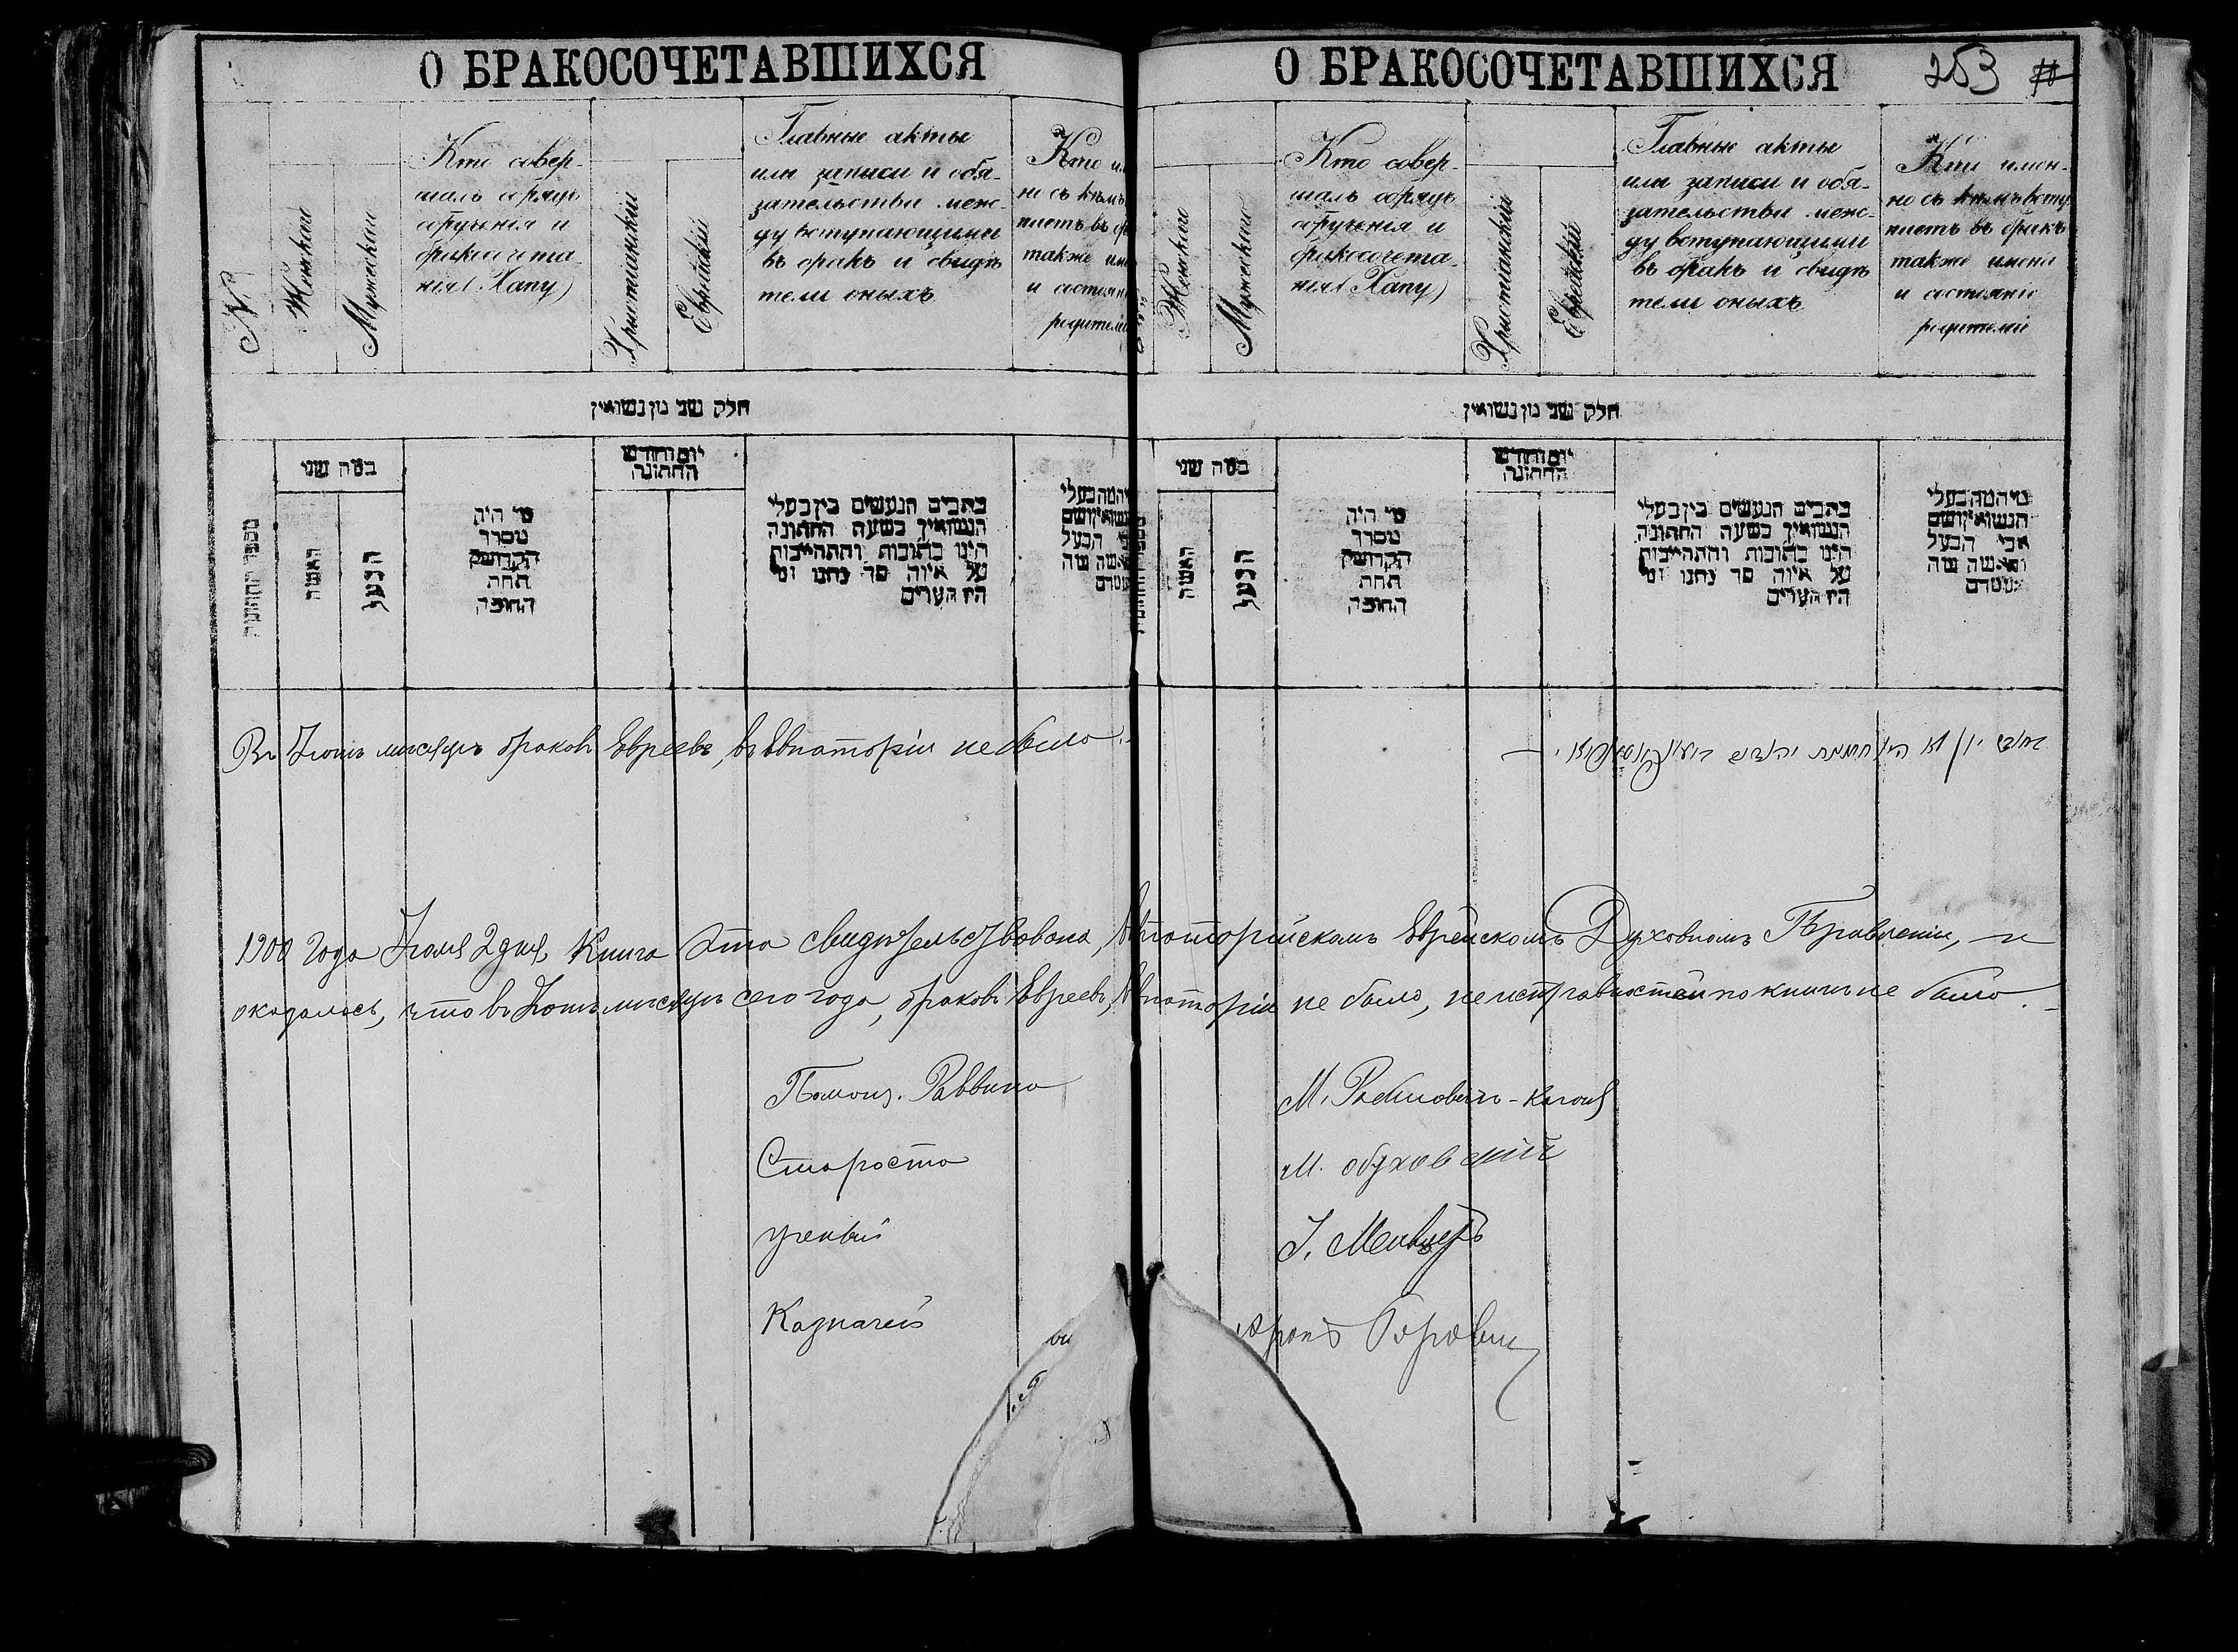 О БРАКОСОЧЕТАВШИХСЯ
№
Женскаи
Мужескаи
Кто совер-
шалъ обрядъ
обрученія и
бракосочета-
нія (Хапу)
Христіанскій
Еврейскій
Главные акты
или записи и обя-
зательства меж-
ду вступающими
въ бракъ и свидѣ
тели оныхъ
Кто им
но съ кѣмъ
паетъ въ бр
также име
и состояни
родителі
חלק שני מן נשואין
מספר החתונה
כמה שני
האשה
הבעל
מי היה
מסדר
הקדושין
תחת
החופה
יום וחדש
החתונה
כתבים הנעשים בין בעלי
הנשואין בשעת החתונה
היינו כתובות והתחייבות
על איזה סך נתנו ומי
היו העדים
О БРАКОСОЧЕТАВШИХСЯ
253
Женскаи
Мужескаи
Кто совер-
шалъ обрядъ
обрученія и
бракосочета-
нія (Хапу)
Христіанскій
Еврейскій
Главные акты
или записи и обя-
зательства меж-
ду вступающими
въ бракъ и свидѣ
тели оныхъ
Кто имен-
но съ кѣмъ всту
паетъ въ бракъ
также имена
и состояніе
родителій
חלק שני מן נשואין
כמה שני
האשה
הבעל
מי היה
מסדר
הקדושין
תחת
החופה
יום וחדש
החתונה
כתבים הנעשים בין בעלי
הנשואין בשעת החתונה
היינו כתובות והתחייבות
על איזה סך נתנו ומי
היו העדים
מי המה בעלי
הנשואין ושם
אבי הבעל
והאשה ומה
מעמדם
Въ Іюнѣ мѣсяцѣ браковъ Евреевъ, въ Евпаторіи не было.
1900 года Іюля 2 дня, Книга эта свидѣтельствована, Евпаторійскомъ Еврейскомъ Духовномъ Правленіи, и
оказалось, что въ Іюнѣ мѣсяцѣ сего года, браковъ Евреевъ, Евпаторіи не было, неисправностей по книгѣ не было.
Помощ. Раввина М. Рабиновичъ-Каганъ
Староста М. Обуховскій
Ученый І. Мейцеръ
Казначей Аронъ